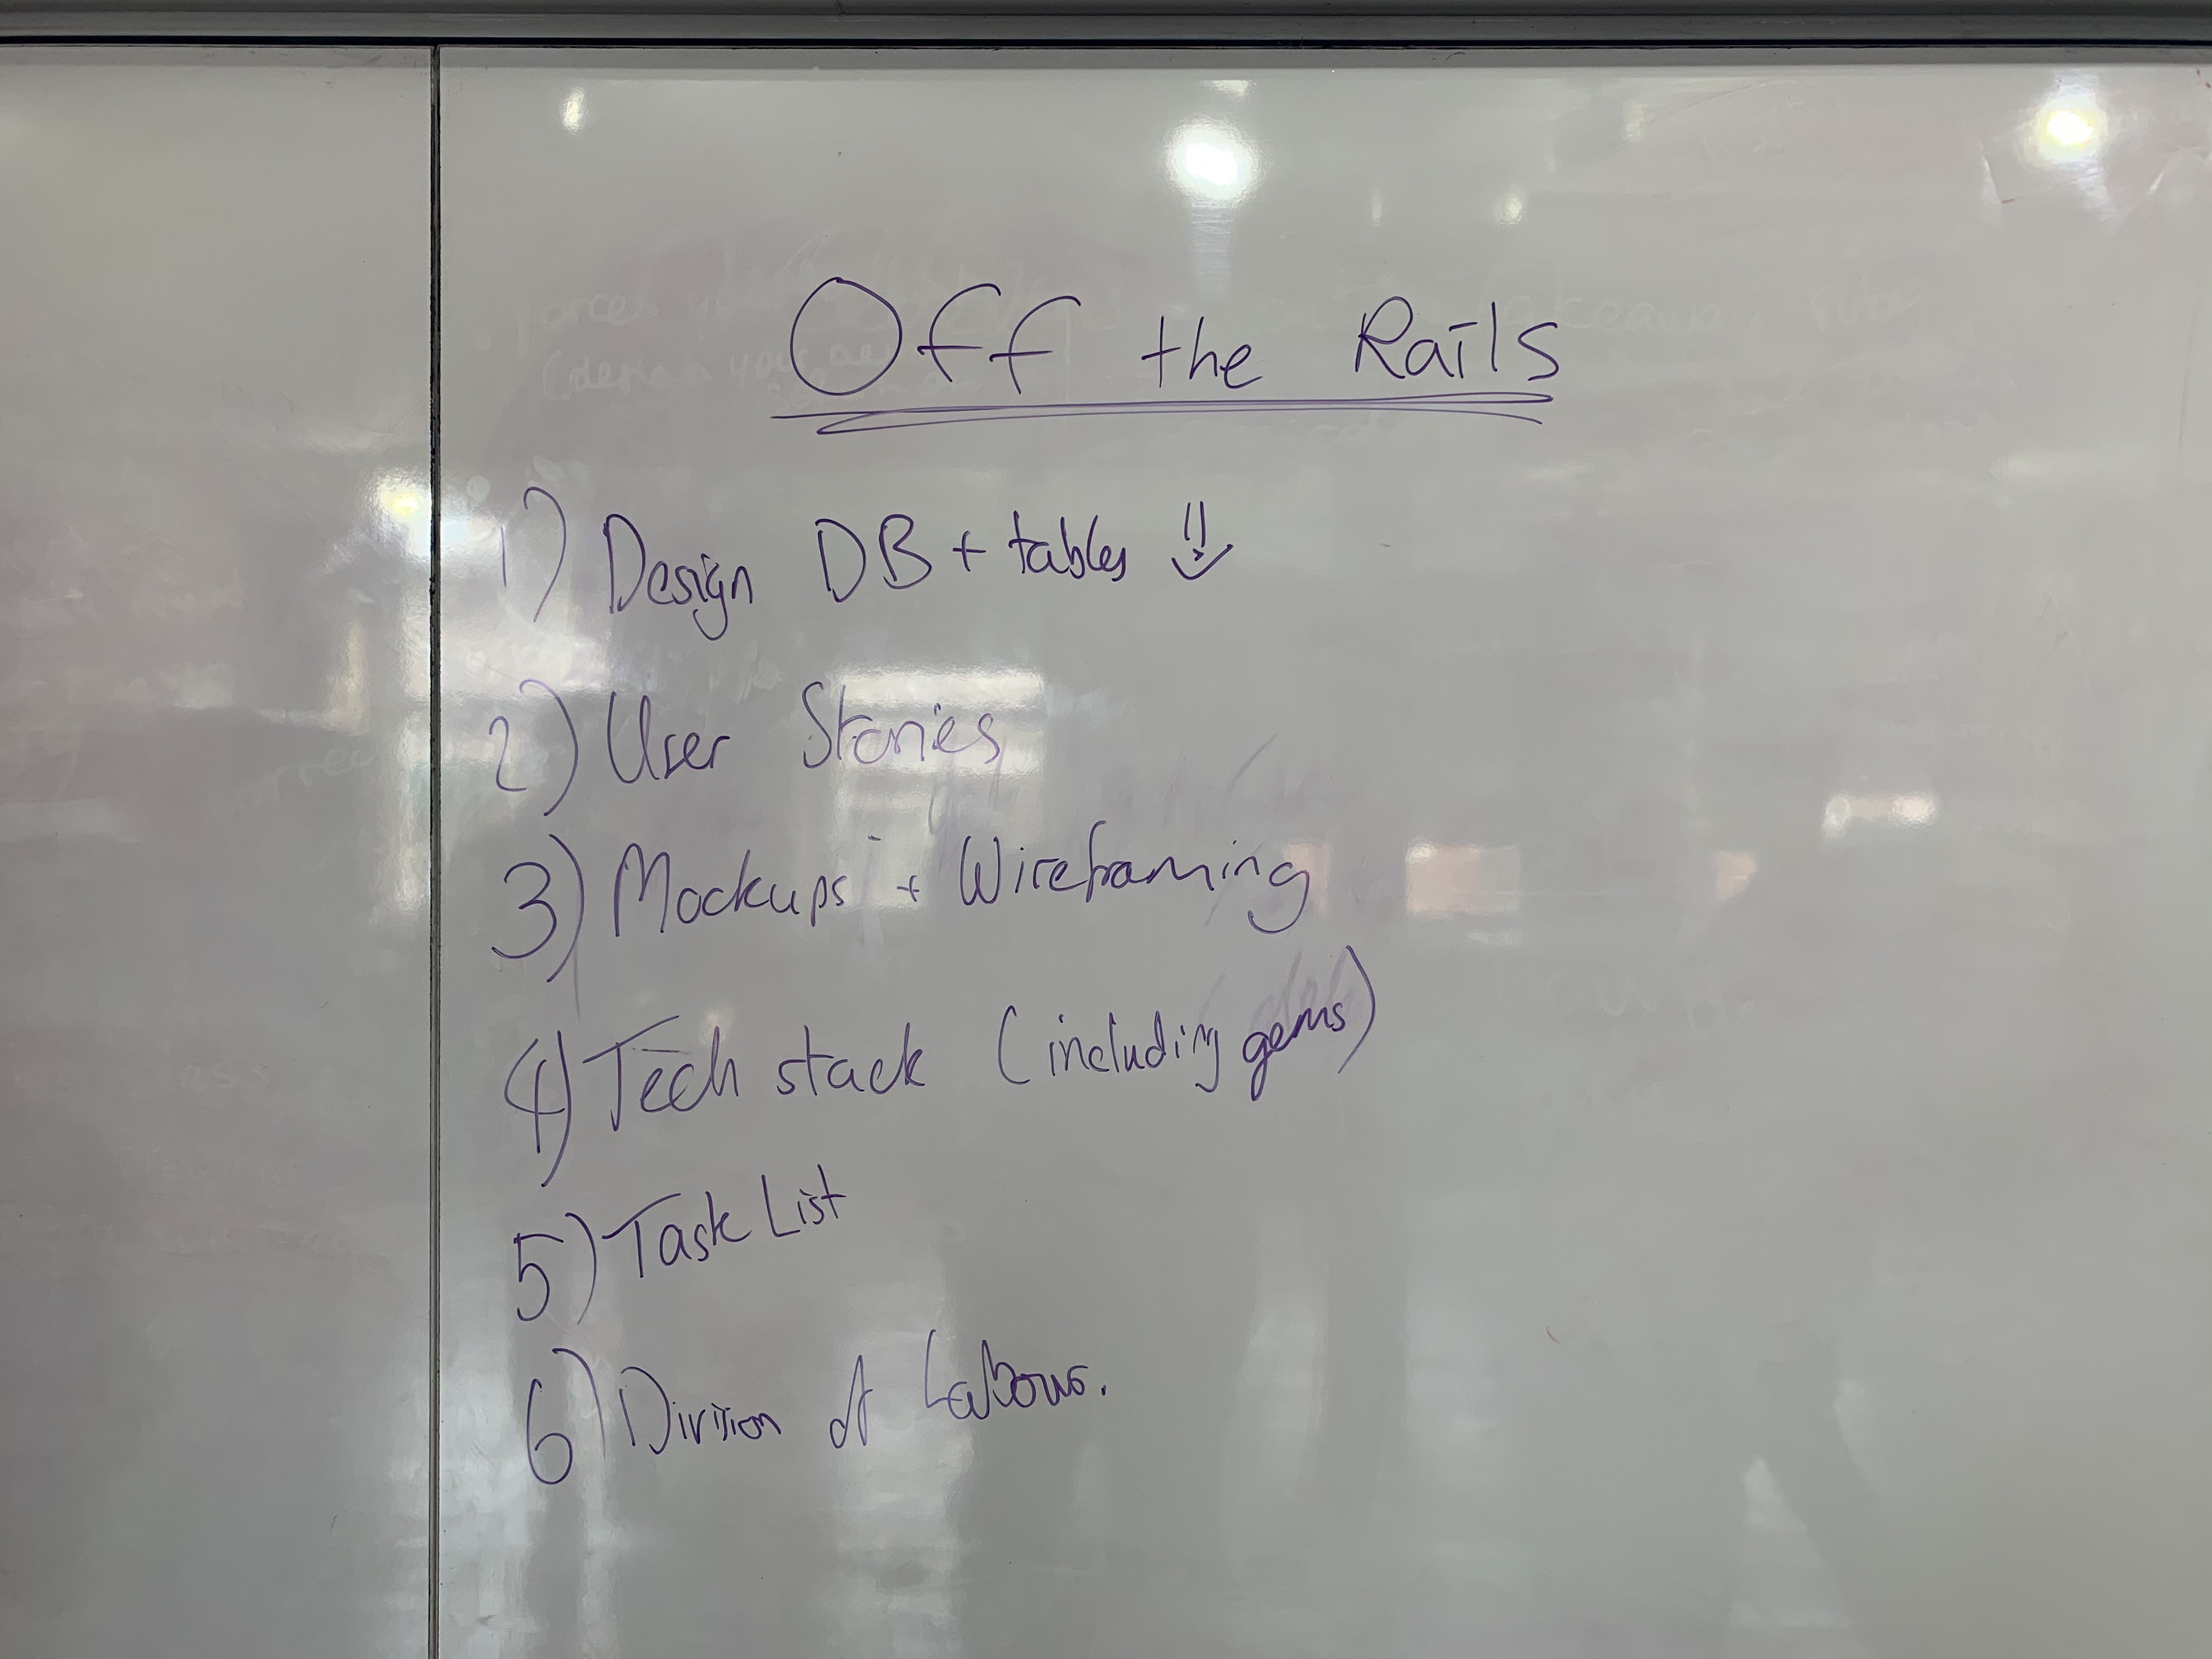 Off the Rails
1) Design DB + tables
2) User Stories
3) Mockups + Wireframing
4) Tech stack (including gems)
5) Task List
6) Division of Labour.